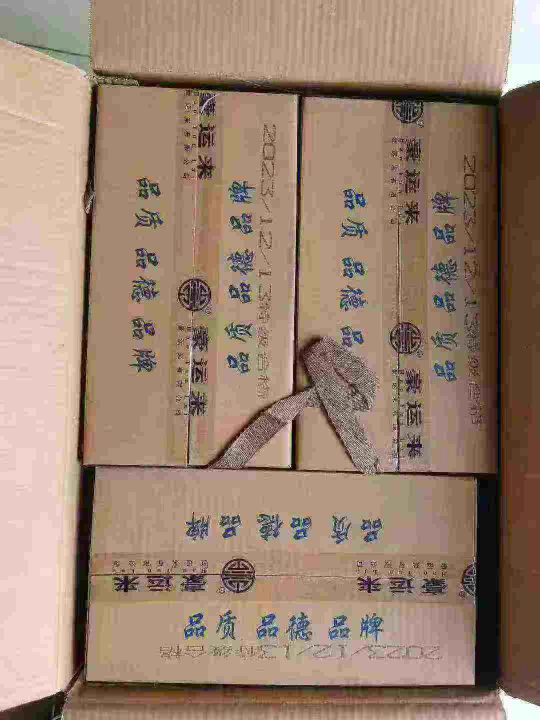 豪运来
豪运来
品质 品德 品牌
品质 品德 品牌
2023/12/13特级合格
豪运来
豪运来
品质 品德 品
品质 品德 品牌
2023/12/13特级合格
品质 品德 品牌
豪运来
豪运来
品质 品德 品牌
2023/12/13特级合格